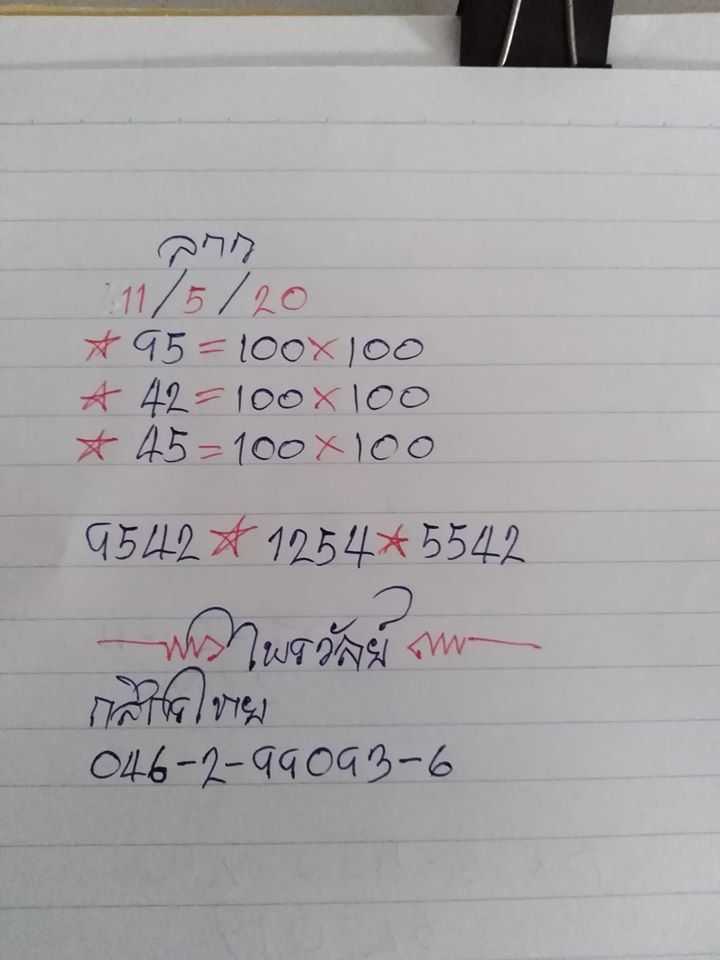 ลาว
11/5/20
☆ 95=100×100
☆ 42=100×100
☆ 45=100×100
9542 ☆ 1254 ☆ 5542
ไพรวัลย์
กสิกรไทย
046-2-99093-6